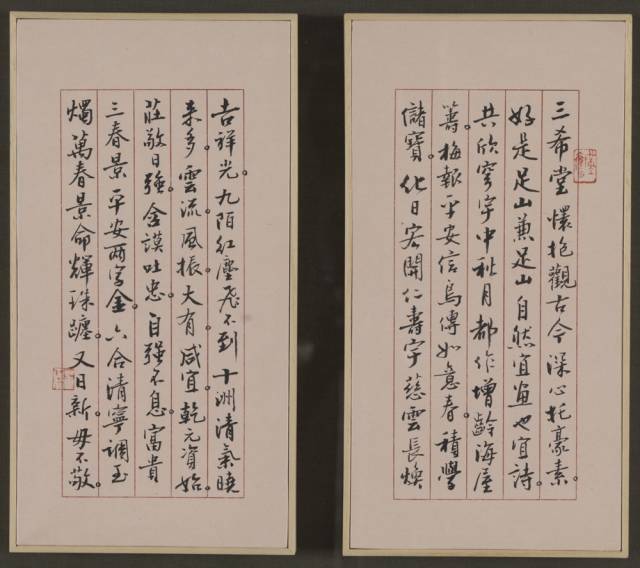 三希堂懷抱觀古今深心托豪素。
好是足山兼足山自然宜畫也宜詩。
共欣寰宇中秋月都作增齡海屋
籌。梅報平安信鳥傳如意春。積學
儲寶。化日宏開仁壽宇慈雲長煥
吉祥光。九陌紅塵飛不到十洲清氣曉
來多。雲流風振。大有咸宜。乾元資始。
莊敬日強。含謨吐忠。自強不息。富貴
三春景平安兩字金。六合清寧調玉
燭萬春景命輝珠躔。又日新。毋不敬。